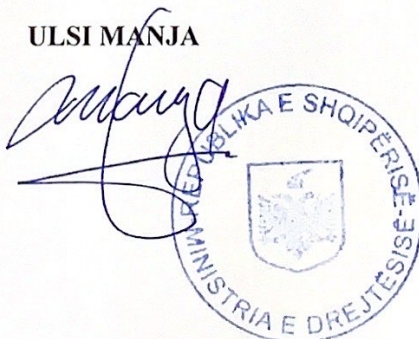 ULSI MANJA
REPUBLIKA E SHQIPËRISË
MINISTRIA E DREJTËSISË